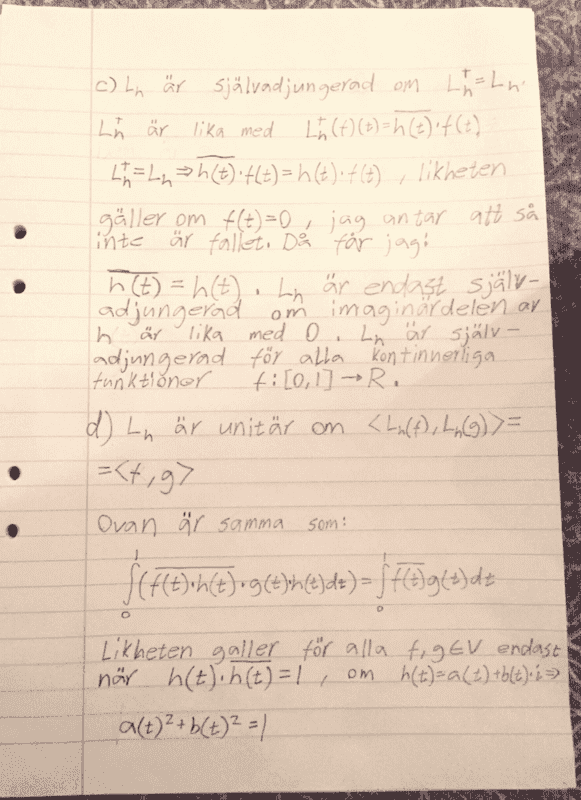 c) Lₕ är självadjungerad om Lₕ†=Lₕ.
Lₕ† är lika med Lₕ†(f)(t)=h̅(̅t̅)̅·f(t)
Lₕ†=Lₕ⇒h̅(̅t̅)̅·f(t)=h(t)·f(t), likheten
gäller om f(t)=0, jag antar att så
inte är fallet. Då får jag:
h̅(̅t̅)̅ = h(t). Lₕ är endast själv-
adjungerad om imaginärdelen av
h är lika med 0. Lₕ är själv-
adjungerad för alla kontinnerliga
funktioner f:[0,1]→R.
d) Lₕ är unitär om <Lₕ(f),Lₕ(g)>=
=<f,g>
Ovan är samma som:
∫₀¹(f̅(̅t̅)̅·h̅(̅t̅)̅·g(t)·h(t)dt)=∫₀¹f̅(̅t̅)̅g(t)dt
Likheten gäller för alla f,g∈V endast
när h(t)·h̅(̅t̅)̅=1, om h(t)=a(t)+b(t)·i⇒
a(t)²+b(t)²=1